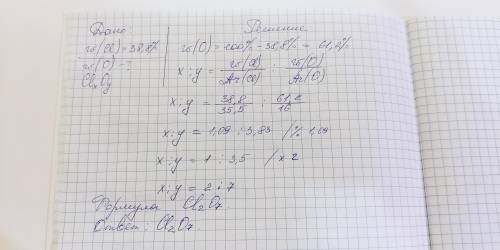 Дано
Решение
w(Cl) = 38,8%
w(O) - ?
ClxOy
w(O) = 100% - 38,8% = 61,2%
x : y = w(Cl)/Ar(Cl) : w(O)/Ar(O)
x : y = 38,8/35,5 : 61,2/16
x : y = 1,09 : 3,83 /% 1,09
x : y = 1 : 3,5 / x 2
x : y = 2 : 7
Формула Cl2O7
Ответ: Cl2O7